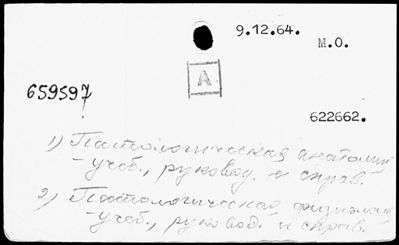 9.12.64.
М.О.
А
659597
622662.
1) Патологическая анатомия
- учеб., руковод. и справ.
2) Патологическая физиолог
- учеб., руковод. и справ.